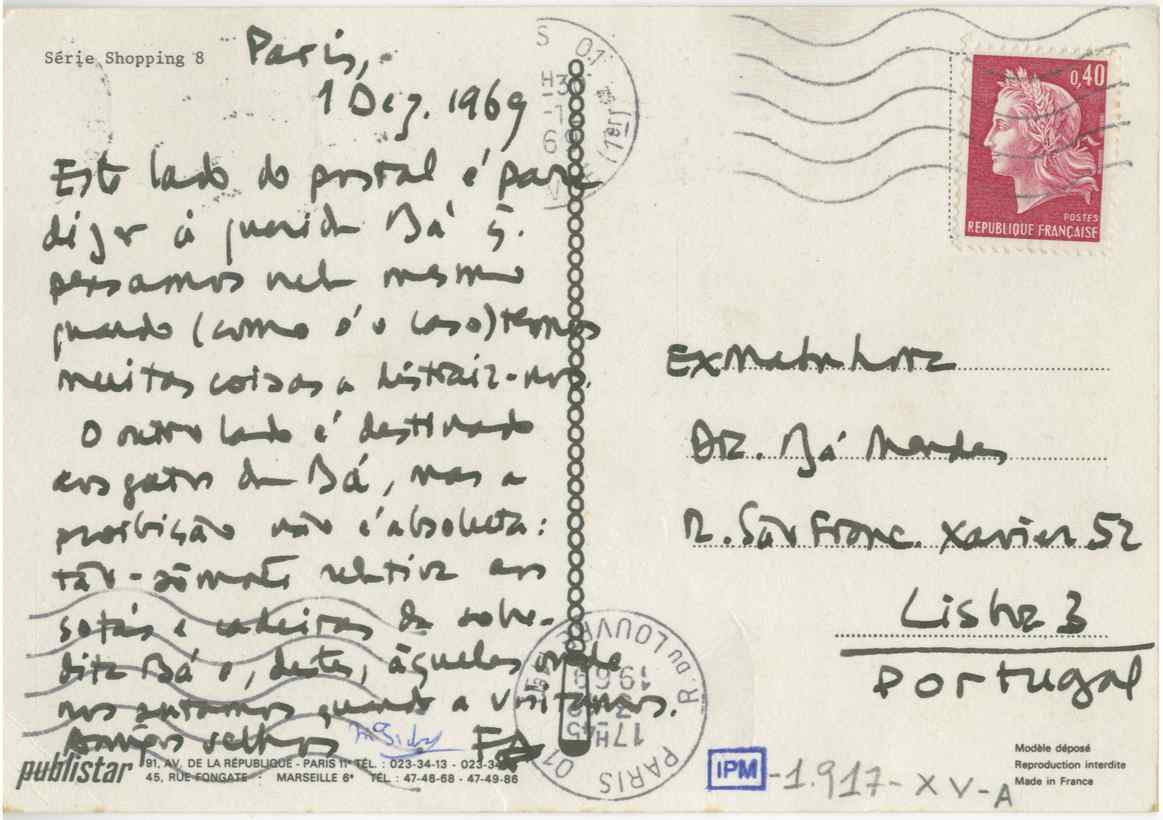 Série Shopping 8
Paris,
1 Dez. 1969
Este lado do postal é para
dizer à querida Bá q.
pensamos nela mesmo
quando (como é o caso) temos
muitas coisas a distrair-nos.
O outro lado é destinado
aos gatos da Bá, mas a
proibição não é absoluta:
tão-sòmente relativa aos
sofás e cadeiras da sobre-
dita Bá e, destes, àqueles onde
nos sentamos quando a visitamos.
Amigos velhos
publistar
91, AV. DE LA RÉPUBLIQUE - PARIS 11e TÉL. : 023-34-13 - 023-34-
45, RUE FONGATE - MARSEILLE 6e TÉL : 47-48-68 - 47-49-86
0,40
POSTES
REPUBLIQUE FRANÇAISE
Dr. Bá Mendes
R. São Franc. Xavier 52
Lisboa 3
Portugal
17H45
PARIS 01
R. DU LOUVRE
IPM -1.917- XV-A
Modèle déposé
Reproduction interdite
Made in France